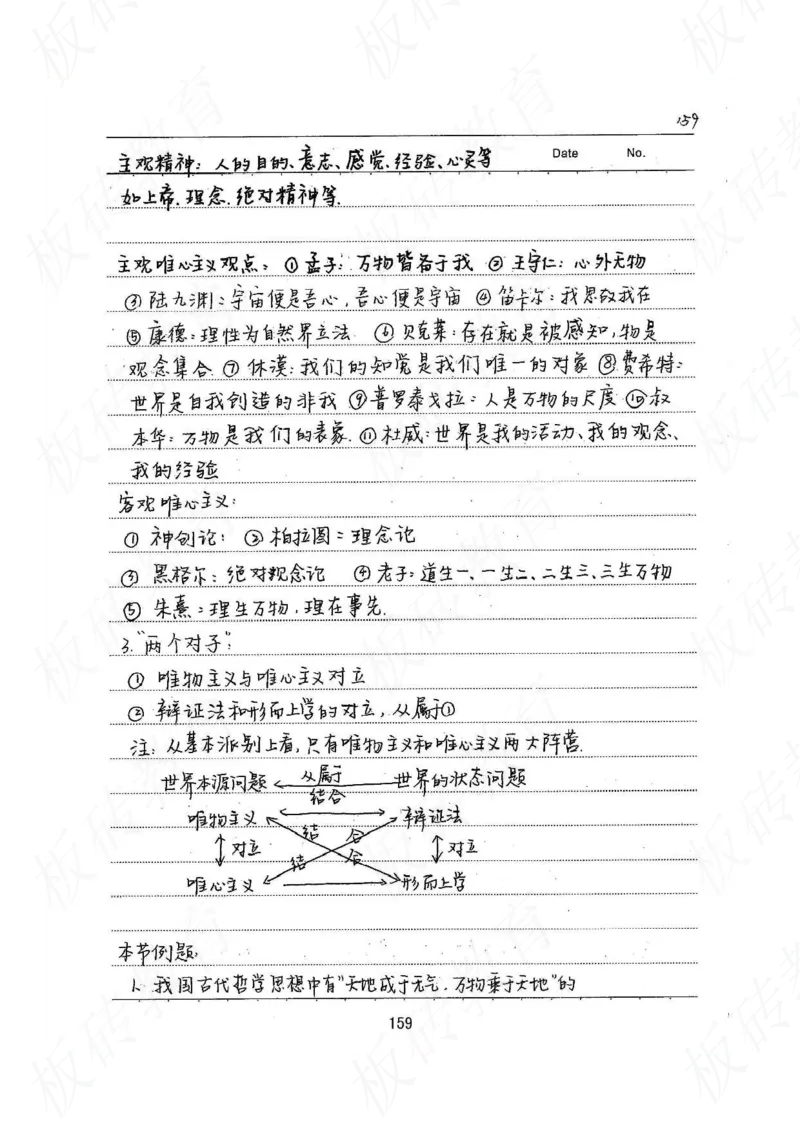 159
主观精神：人的目的、意志、感觉、经验、心灵等 Date No.
如上帝、理念、绝对精神等.
主观唯心主义观点：①孟子：万物皆备于我 ②王守仁：心外无物
③陆九渊：宇宙便是吾心，吾心便是宇宙 ④笛卡尔：我思故我在
⑤康德：理性为自然界立法 ⑥贝克莱：存在就是被感知，物是
观念集合 ⑦休谟：我们的知觉是我们唯一的对象 ⑧费希特：
世界是自我创造的非我 ⑨普罗泰戈拉：人是万物的尺度 ⑩叔
本华：万物是我们的表象. ⑪杜威：世界是我的活动、我的观念、
我的经验
客观唯心主义：
① 神创论： ②柏拉图：理念论
③ 黑格尔：绝对观念论 ④老子：道生一、一生二、二生三、三生万物
⑤ 朱熹：理生万物，理在事先.
3.“两个对子”：
① 唯物主义与唯心主义对立
② 辩证法和形而上学的对立，从属于①
注：从基本派别上看，只有唯物主义和唯心主义两大阵营.
世界本源问题 从属于 世界的状态问题
结合
唯物主义 辩证法
结 合
对立 对立
结 合
唯心主义 形而上学
本节例题：
1. 我国古代哲学思想中有“天地成于元气，万物乘于天地”的
159
板砖教育